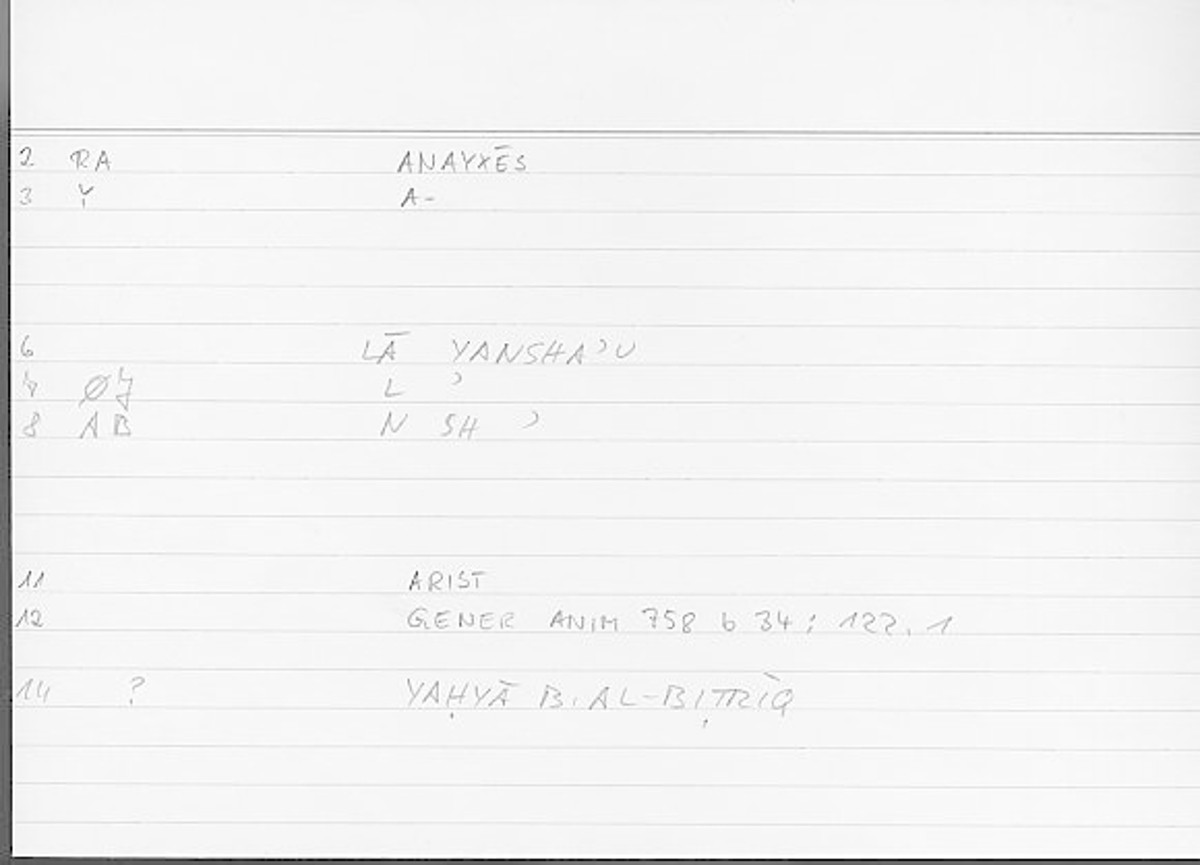 2 RA ANAYXĒS
3 Y A-
6 LĀ YANSHAʾU
7 ØJ L ʾ
8 AB N SH ʾ
11 ARIST
12 GENER ANIM 758 b 34; 122.1
14 ? YAḤYĀ B. AL-BIṬRĪQ